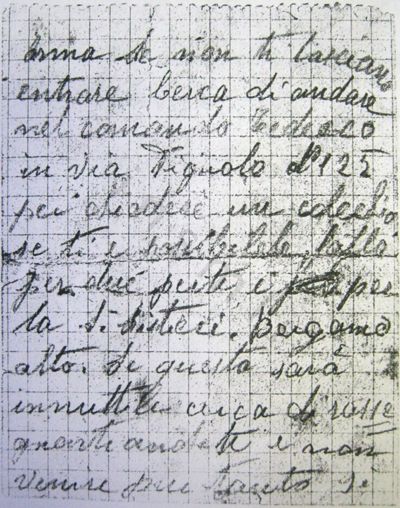 Anna se non ti lasciano
entrare cerca di andare
nel comando Tedesco
in via Pignolo nº 125
per chiedere un colochio
se ti è possibile
per due
la S. bergamo
alto. Se questo sarà
innuttile cerca di rasse
gnarti anche te e non
venire più tanto se